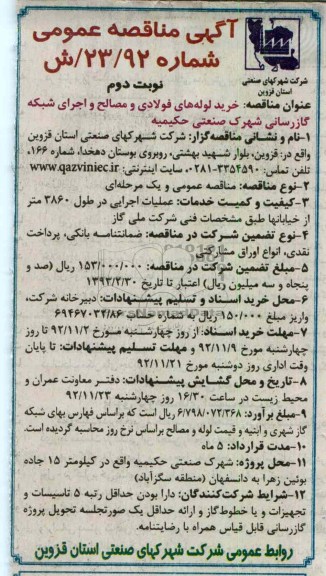 آگهی مناقصه عمومی
شماره ۲۳/۹۲/ش
نوبت دوم
شرکت شهرکهای صنعتی
استان قزوین
عنوان مناقصه: خرید لوله‌های فولادی و مصالح و اجرای شبکه
گازرسانی شهرک صنعتی حکیمیه
۱-نام و نشانی مناقصه‌گزار: شرکت شهرکهای صنعتی استان قزوین
واقع در: قزوین، بلوار شهید بهشتی، روبروی بوستان دهخدا، شماره ۱۶۶،
تلفن تماس: ۳۳۵۴۵۹۰-۰۲۸۱، سایت اینترنتی: www.qazviniec.ir
۲-نوع مناقصه: مناقصه عمومی و یک مرحله‌ای
۳-کیفیت و کمیت خدمات: عملیات اجرایی در طول ۳۸۶۰ متر
از خیابانها طبق مشخصات فنی شرکت ملی گاز
۴-نوع تضمین شرکت در مناقصه: ضمانتنامه بانکی، پرداخت
نقدی، انواع اوراق مشارکتی
۵-مبلغ تضمین شرکت در مناقصه: ۱۵۳/۰۰۰/۰۰۰ ریال (صد و
پنجاه و سه میلیون ریال) اعتبار تا تاریخ ۱۳۹۳/۲/۳۰
۶-محل خرید اسناد و تسلیم پیشنهادات: دبیرخانه شرکت،
واریز مبلغ ۱۵۰/۰۰۰ ریال به شماره حساب ۶۹۴۶۷۰۳۴/۸۶
۷-مهلت خرید اسناد: از روز چهارشنبه مورخ ۹۲/۱۱/۲ تا روز
چهارشنبه مورخ ۹۲/۱۱/۹ و مهلت تسلیم پیشنهادات: تا پایان
وقت اداری روز دوشنبه مورخ ۹۲/۱۱/۲۱
۸-تاریخ و محل گشایش پیشنهادات: دفتر معاونت عمران و
محیط زیست در ساعت ۱۶/۳۰ روز چهارشنبه ۹۲/۱۱/۲۳
۹-مبلغ برآورد: ۶/۷۹۸/۰۷۲/۳۶۸ ریال است که براساس فهارس بهای شبکه
گاز شهری و ابنیه و قیمت لوله و مصالح براساس نرخ روز محاسبه گردیده است.
۱۰-مدت قرارداد: ۵ ماه
۱۱-محل پروژه: شهرک صنعتی حکیمیه واقع در کیلومتر ۱۵ جاده
بوئین زهرا به دانسفهان (منطقه سگزآباد)
۱۲-شرایط شرکت‌کنندگان: دارا بودن حداقل رتبه ۵ تاسیسات و
تجهیزات و یا خطوط گاز و ارائه حداقل یک صورتجلسه تحویل پروژه
گازرسانی قابل قیاس همراه با رضایتنامه.
روابط عمومی شرکت شهرکهای صنعتی استان قزوین